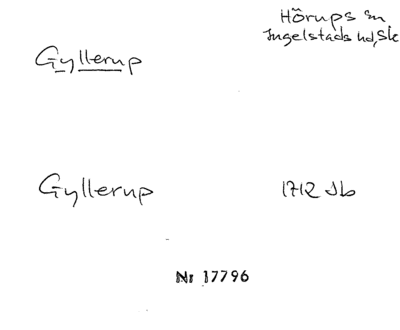 Hörups sn
Ingelstads hd, Sk
Gyllerup
Gyllerup
1712 Jb
Nr 17796